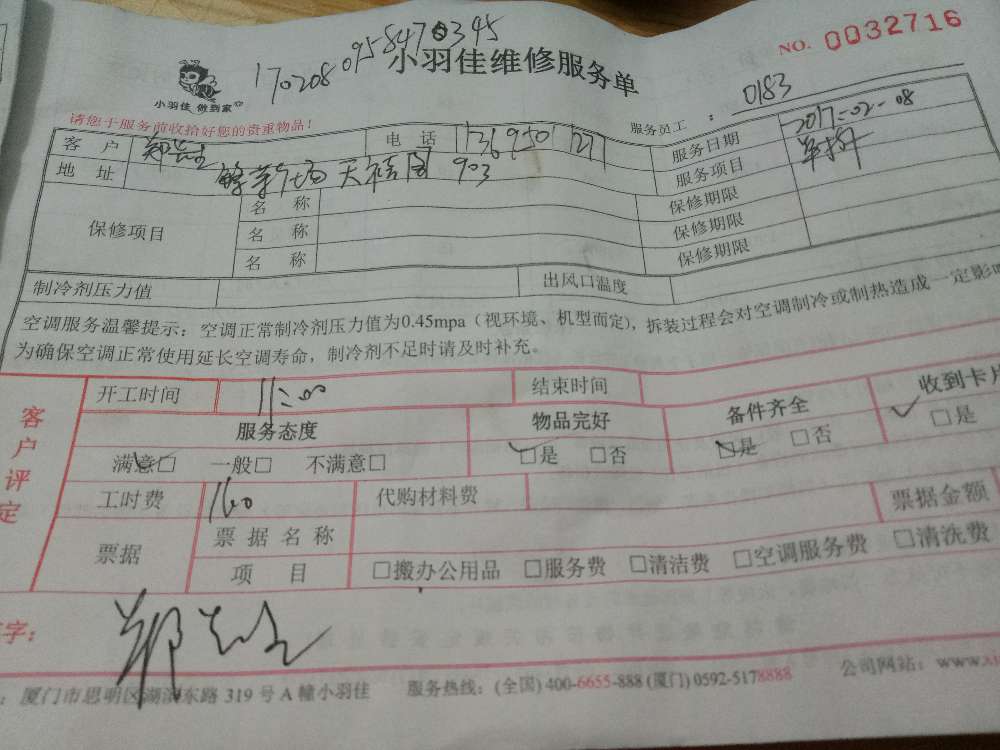 170208 0958470345
小羽佳维修服务单
NO. 0032716
小羽佳 做到家
服务员工 : 0183
请您于服务前收拾好您的贵重物品!
客 户 电 话 服务日期 2017-02-08
地 址 903 服务项目
保修项目 名 称 保修期限
名 称 保修期限
名 称 保修期限
制冷剂压力值 出风口温度
空调服务温馨提示: 空调正常制冷剂压力值为0.45mpa(视环境、机型而定), 拆装过程会对空调制冷或制热造成一定影
为确保空调正常使用延长空调寿命, 制冷剂不足时请及时补充。
客户评定
开工时间 11:00 结束时间
服务态度 物品完好 备件齐全 收到卡
满意□ 一般□ 不满意□ □是 □否 □是 □否 □是
工时费 160 代购材料费 票据金额
票据 票据名称
项 目 □搬办公用品 □服务费 □清洁费 □空调服务费 □清洗费
字:
: 厦门市思明区湖滨东路 319 号 A 幢小羽佳 服务热线: (全国) 400-6655-888 (厦门) 0592-5178888 公司网站: www.xi